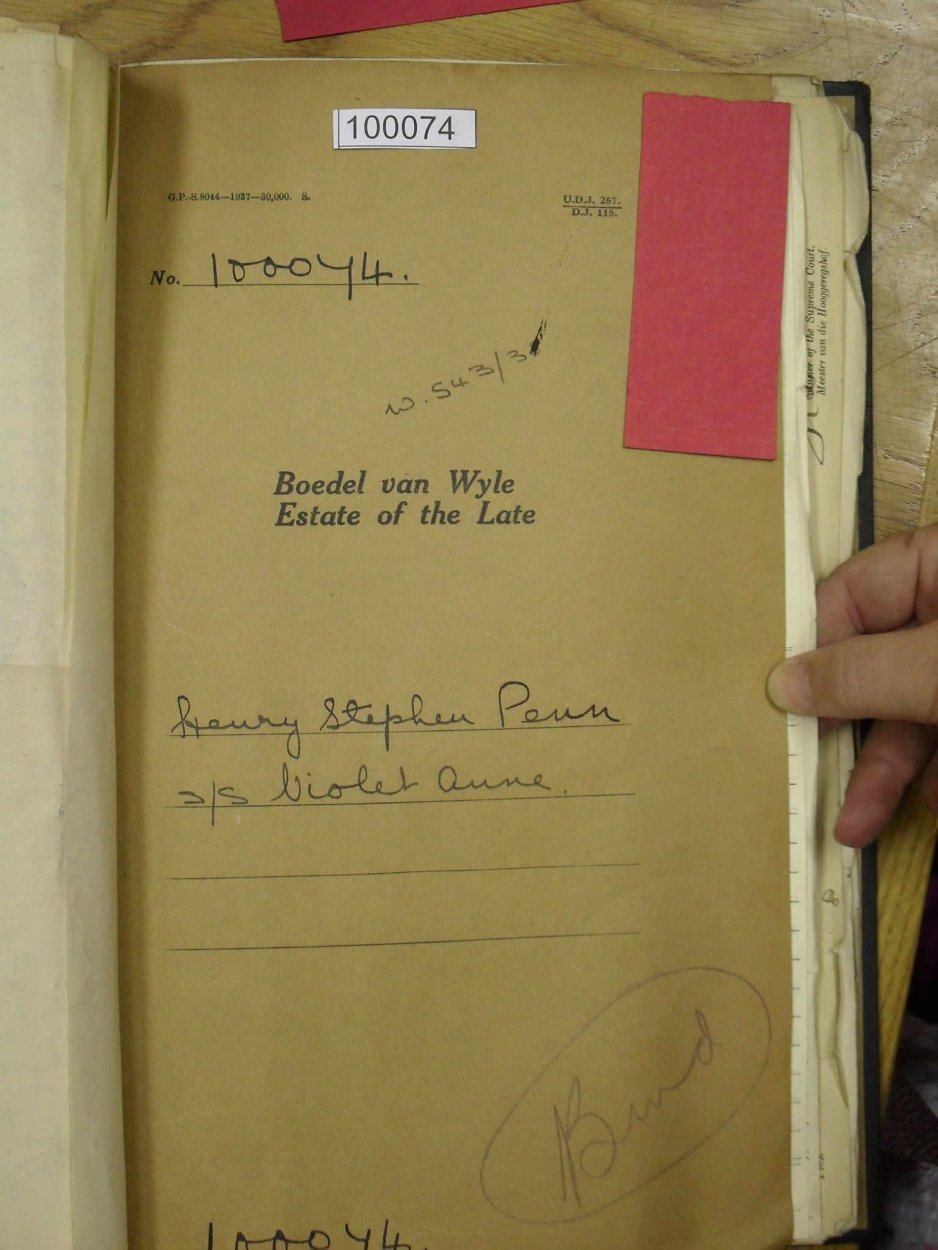 100074
G.P.-S.8044—1937—30,000. S.
U.D.J. 257.
D.J. 115.
No. 100074.
W. 543/3
Boedel van Wyle
Estate of the Late
Henry Stephen Penn
s/s Violet Anne.
Bund
100074.
Master of the Supreme Court.
Meester van die Hooggeregshof.